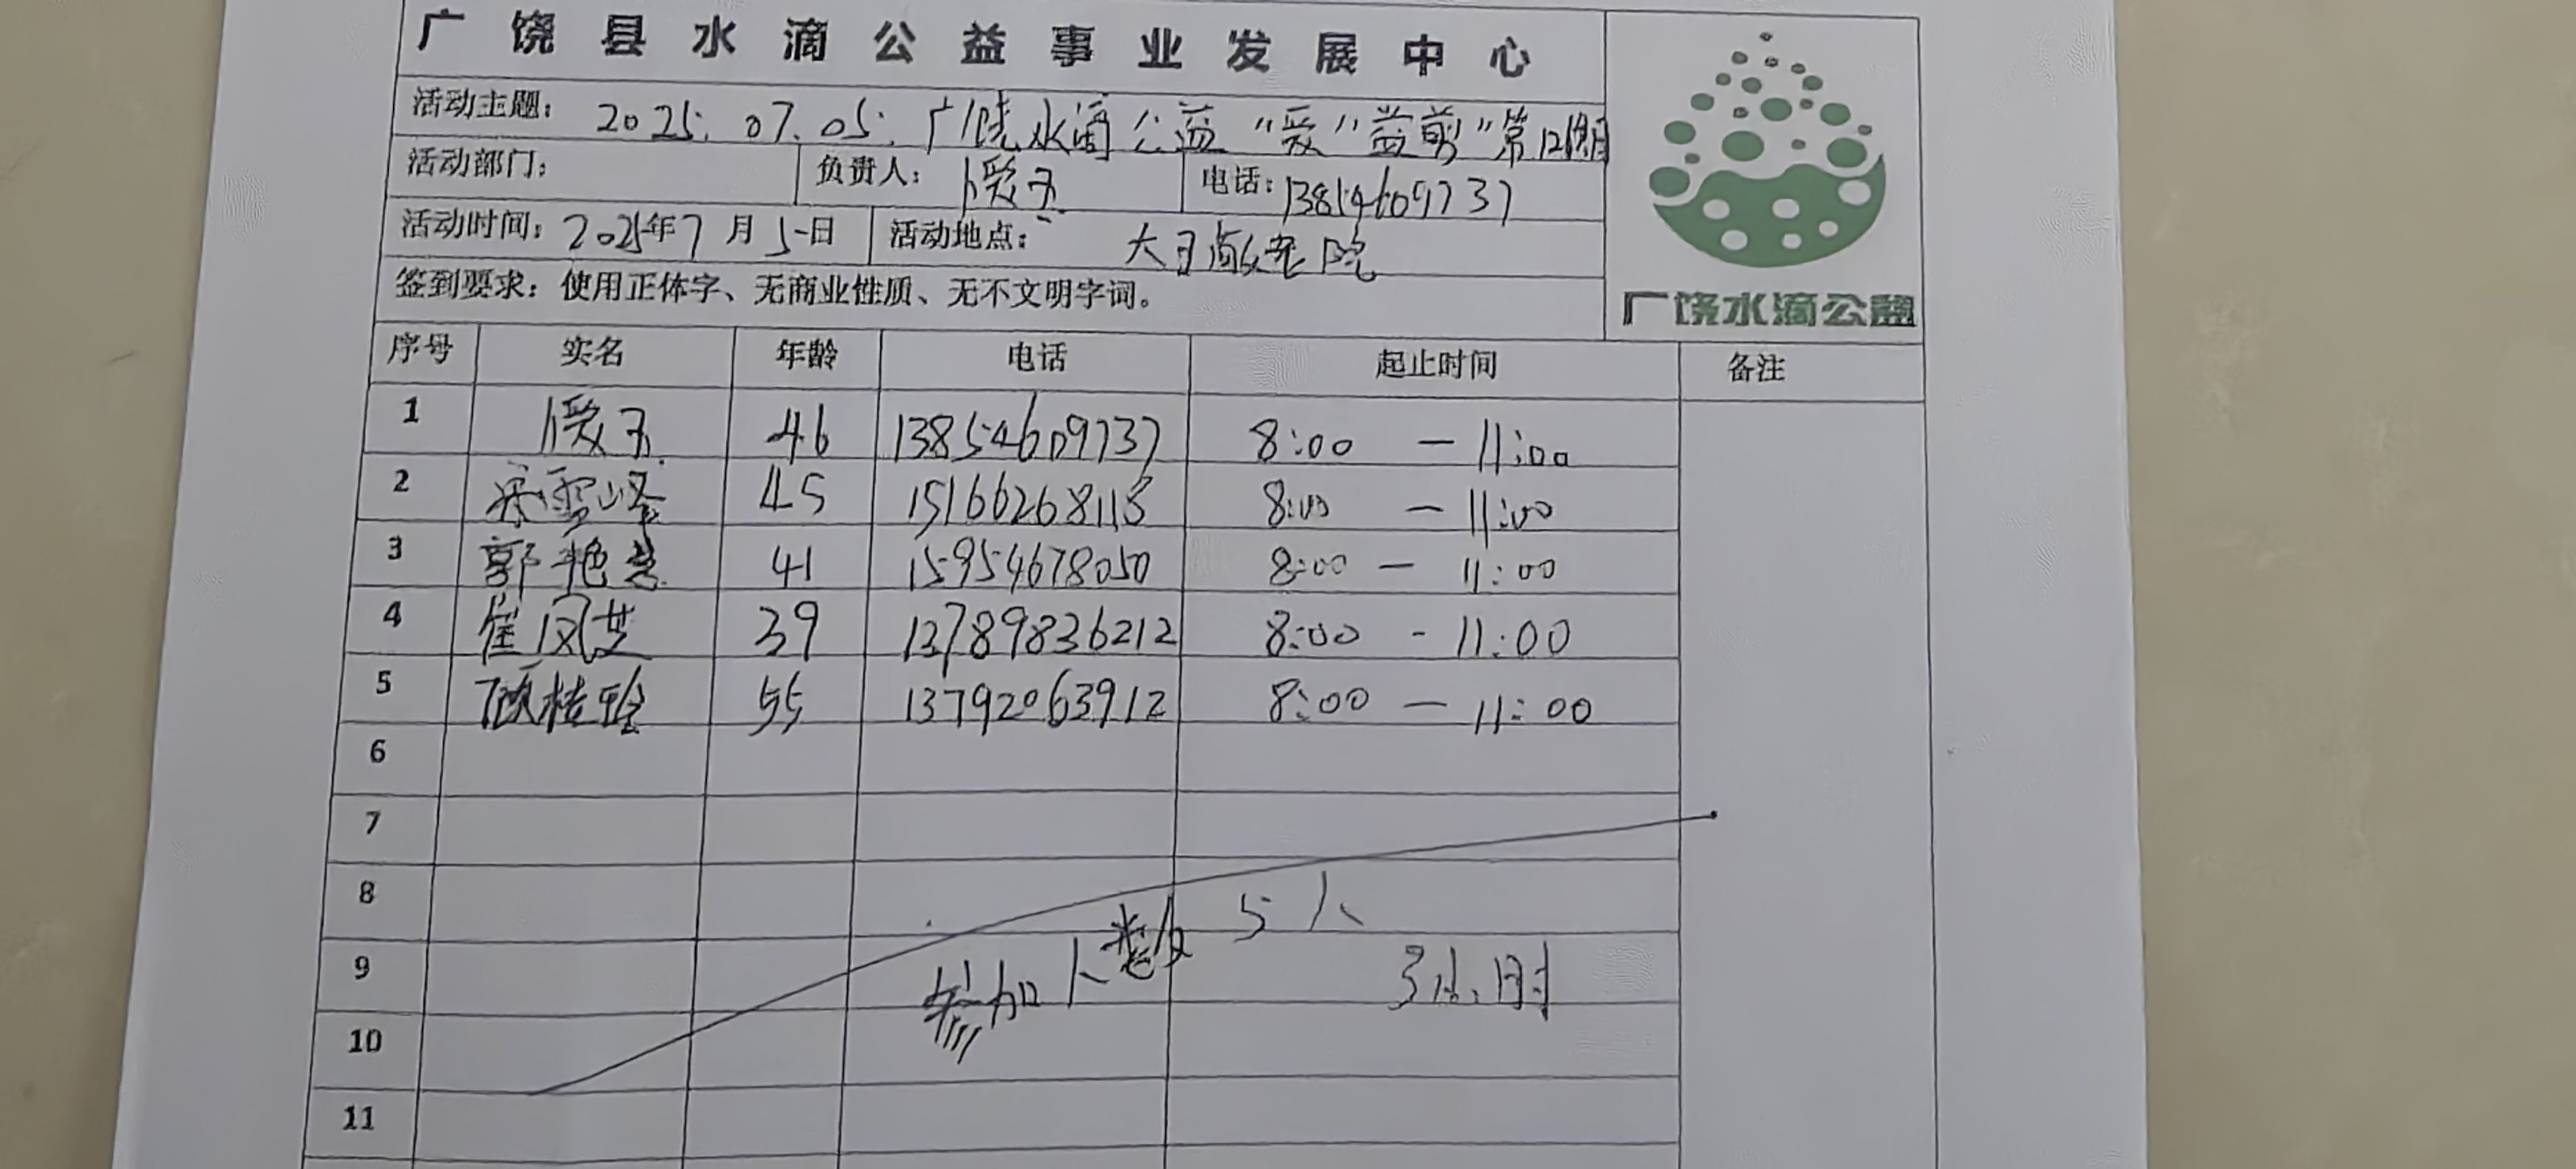 广饶县水滴公益事业发展中心
活动主题：2025.07.05.广饶水滴公益“爱”益剪”第12期
活动部门： 负责人： 电话：13854609737
活动时间：2025年7月5日 活动地点：大王敬老院
签到要求：使用正体字、无商业性质、无不文明字词。
广饶水滴公益
序号 实名 年龄 电话 起止时间 备注
1 46 13854609737 8:00 — 11:00
2 宋雪峰 45 15166268118 8:00 — 11:00
3 郭艳 41 15954678050 8:00 — 11:00
4 崔凤芝 39 13789836212 8:00 - 11:00
5 顾桂玲 55 13792063912 8:00 — 11:00
6
7
8
参加人数 5人
9 3小时
10
11